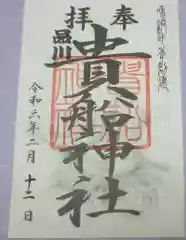 奉拝
品川
貴船神社
令和六年二月十二日